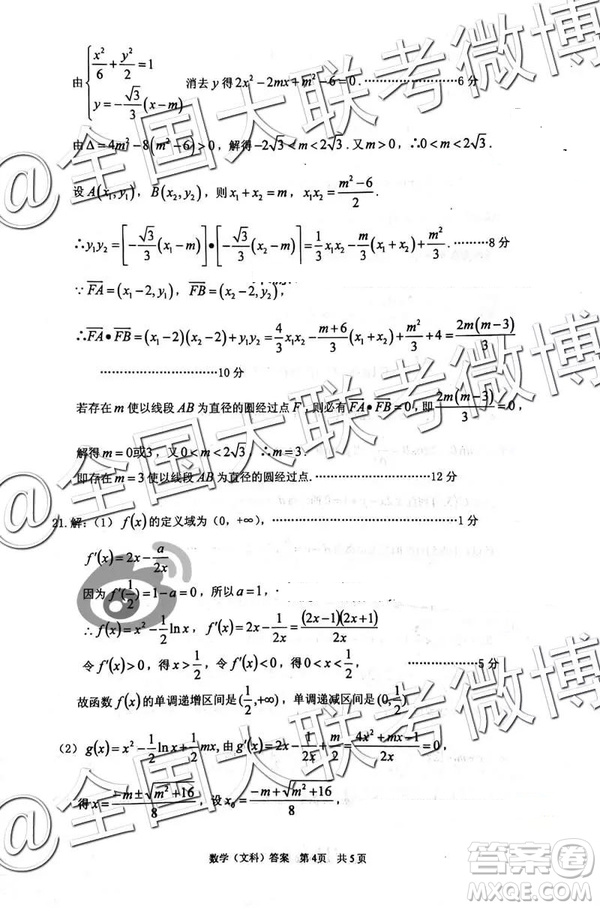 由{x²/6+y²/2=1, y=-√3/3(x-m)} 消去 y 得 2x²-2mx+m²-6=0. ………………6 分
由 Δ=4m²-8(m²-6)>0, 解得 -2√3<m<2√3. 又 m>0, ∴0<m<2√3.
设 A(x₁,y₁), B(x₂,y₂), 则 x₁+x₂=m, x₁x₂=(m²-6)/2.
∴y₁y₂=[-√3/3(x₁-m)]•[-√3/3(x₂-m)]=1/3x₁x₂-m/3(x₁+x₂)+m²/3. ………8 分
∵FA=(x₁-2,y₁), FB=(x₂-2,y₂),
∴FA•FB=(x₁-2)(x₂-2)+y₁y₂=4/3x₁x₂-(m+6)/3(x₁+x₂)+m²/3+4=2m(m-3)/3.
………………10 分
若存在 m 使以线段 AB 为直径的圆经过点 F, 则必有 FA•FB=0, 即 2m(m-3)/3=0,
解得 m=0或3, 又 0<m<2√3, ∴m=3.
即存在 m=3 使以线段 AB 为直径的圆经过点. ………………12 分
21.解:(1) f(x)的定义域为(0,+∞), ………………1 分
f′(x)=2x-a/2x
因为 f′(1/2)=1-a=0, 所以 a=1,
∴f(x)=x²-1/2lnx, f′(x)=2x-1/2x=(2x-1)(2x+1)/2x
令 f′(x)>0, 得 x>1/2, 令 f′(x)<0, 得 0<x<1/2, ………5 分
故函数 f(x) 的单调递增区间是(1/2,+∞), 单调递减区间是(0,1/2)
(2) g(x)=x²-1/2lnx+1/2mx, 由 g′(x)=2x-1/2x+m/2=(4x²+mx-1)/2x=0,
得 x=(-m±√(m²+16))/8, 设 x₀=(-m+√(m²+16))/8,
数学(文科)答案 第4页 共5页
@全国大联考微博
@全国大联考微博
答案圈
MXQE.COM